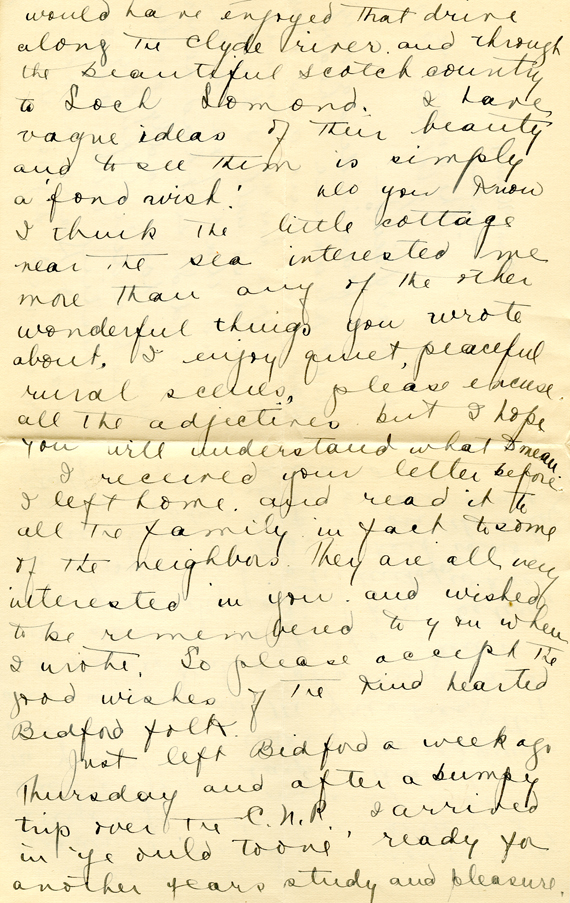 would have enjoyed that drive
along the Clyde river. and through
the beautiful Scotch country
to Loch Lomond. I have
vague ideas of their beauty
and to see them is simply
a 'fond wish'. Do you know
I think the little cottage
near the sea interested me
more than any of the other
wonderful things you wrote
about. I enjoy quiet, peaceful
rural scenes, please excuse
all the adjectives but I hope
you will understand what I mean.
I received your letter before
I left home. and read it to
all the family in fact to some
of the neighbors. They are all very
interested in you. and wished
to be remembered to you when
I wrote. So please accept the
good wishes of the kind hearted
Bidford folk.
Just left Bidford a week ago
Thursday and after a bumpy
trip over the C.N.R. I arrived
in 'ye ould toone' ready for
another years study and pleasure.